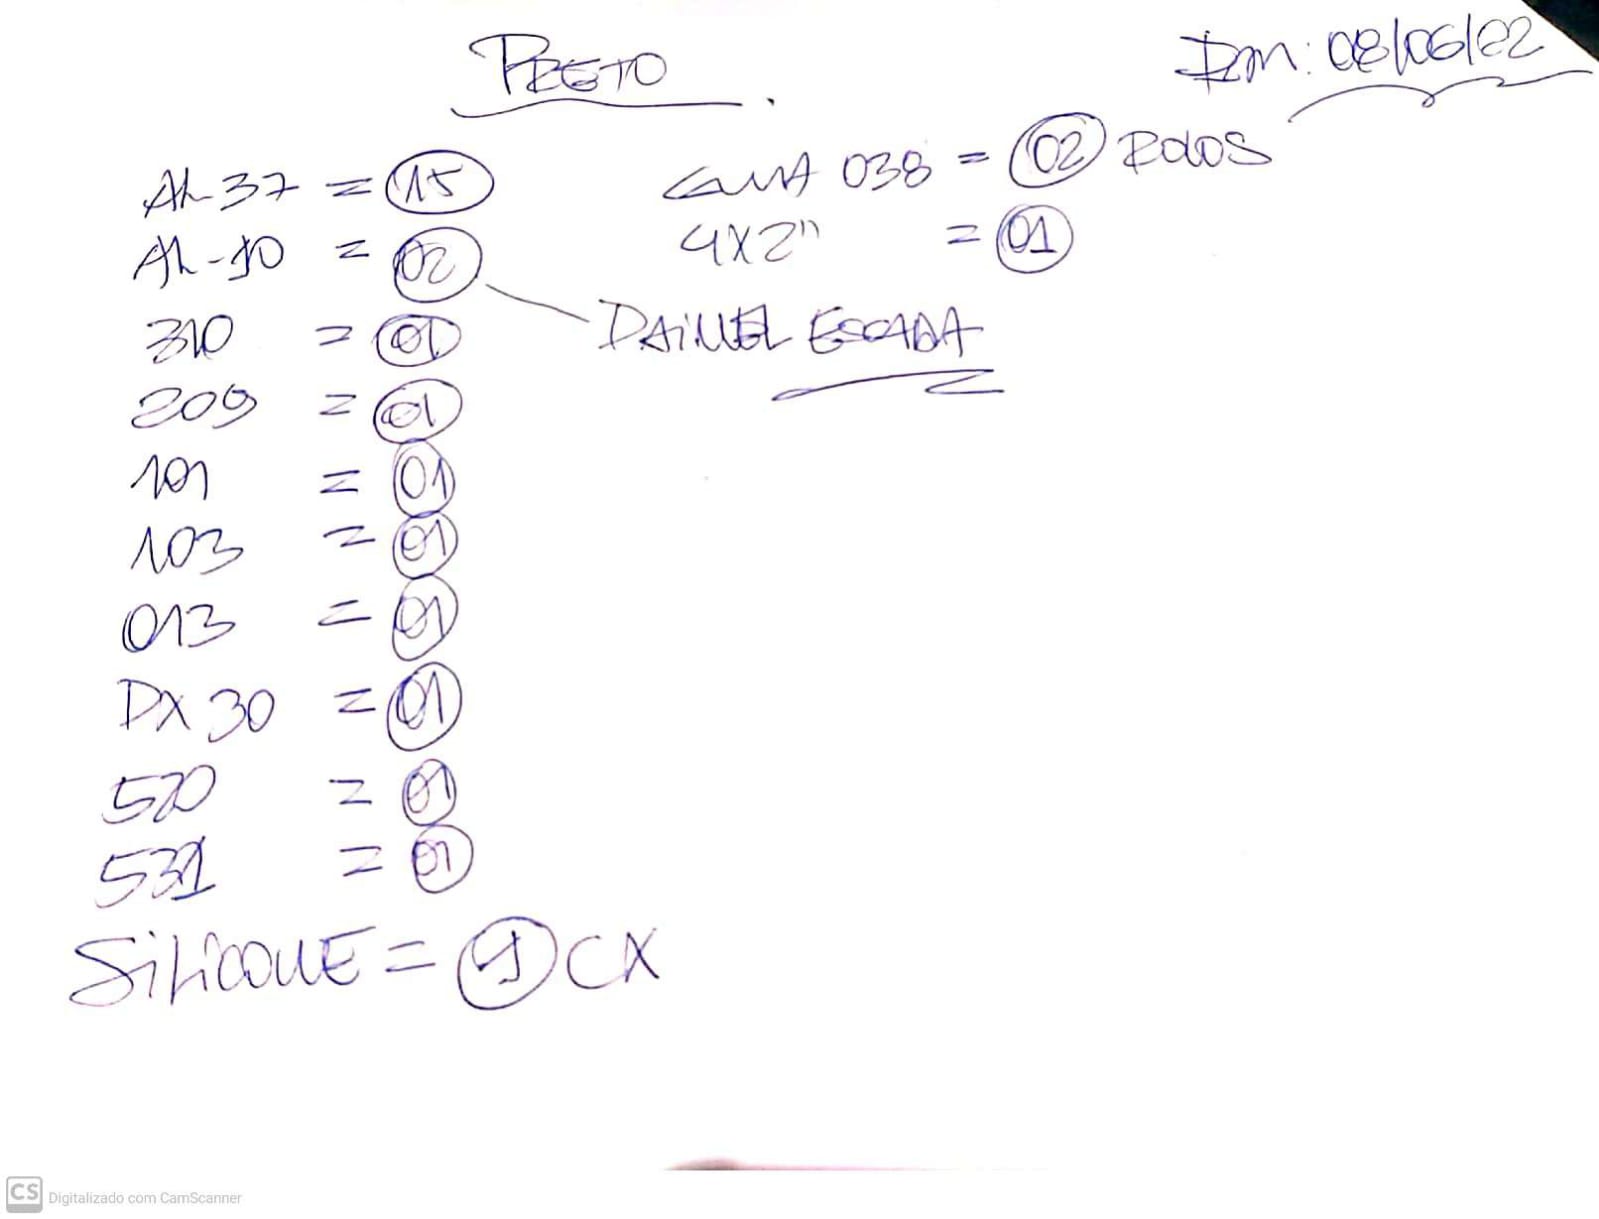 PRETO
Dom: 08/06/22
AL-37 = 15
AL-10 = 02
310 = 01
209 = 01
101 = 01
103 = 01
013 = 01
DX 30 = 01
520 = 01
531 = 01
SiLiCONE = 1 CX
038 = 02 ROLOS
4X2" = 01
DAiNEL ESCADA
Digitalizado com CamScanner